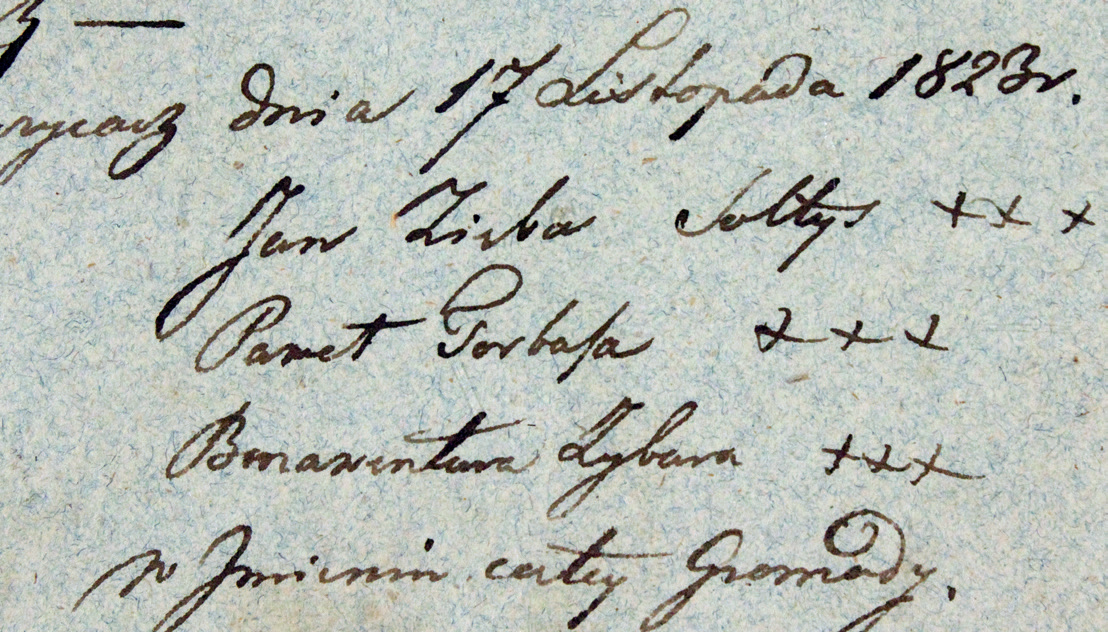 dnia 17 Listopada 1823r.
Jan Zięba Sołtys + + +
Paweł Gorbasa + + +
Bonawentura Zybura + + +
w Jmieniu całey Gromady.